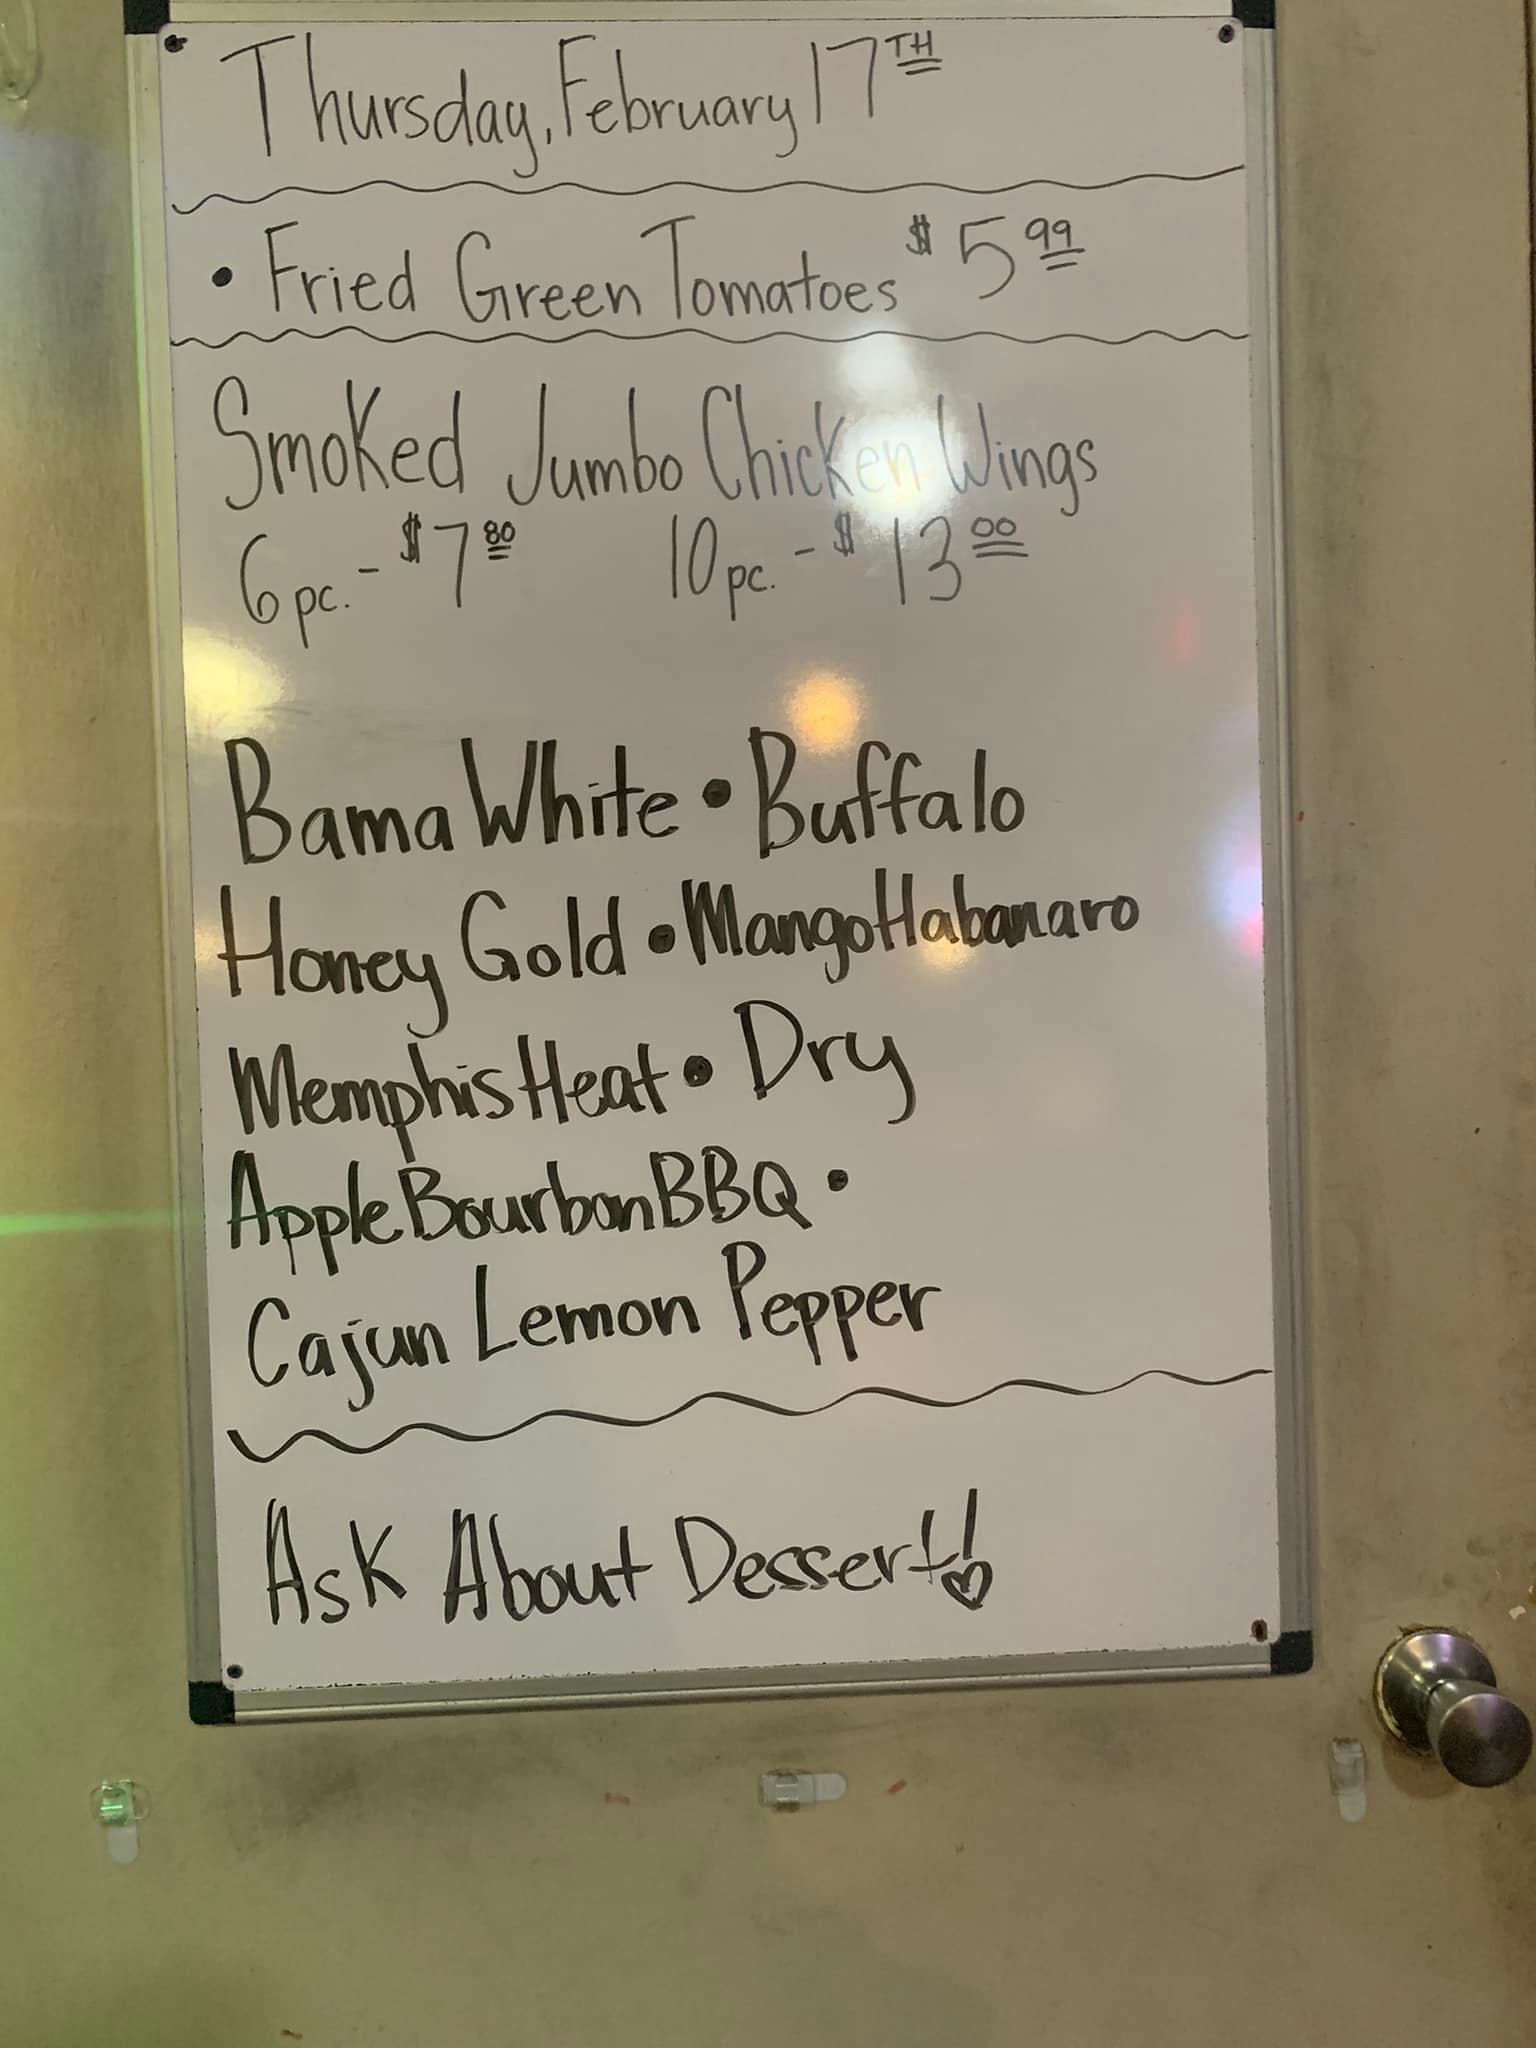 Thursday, February 17TH
• Fried Green Tomatoes $5.99
Smoked Jumbo Chicken Wings
6pc. - $7.80 10pc. - $13.00
Bama White • Buffalo
Honey Gold • Mango Habanaro
Memphis Heat • Dry
Apple Bourbon BBQ •
Cajun Lemon Pepper
Ask About Dessert!